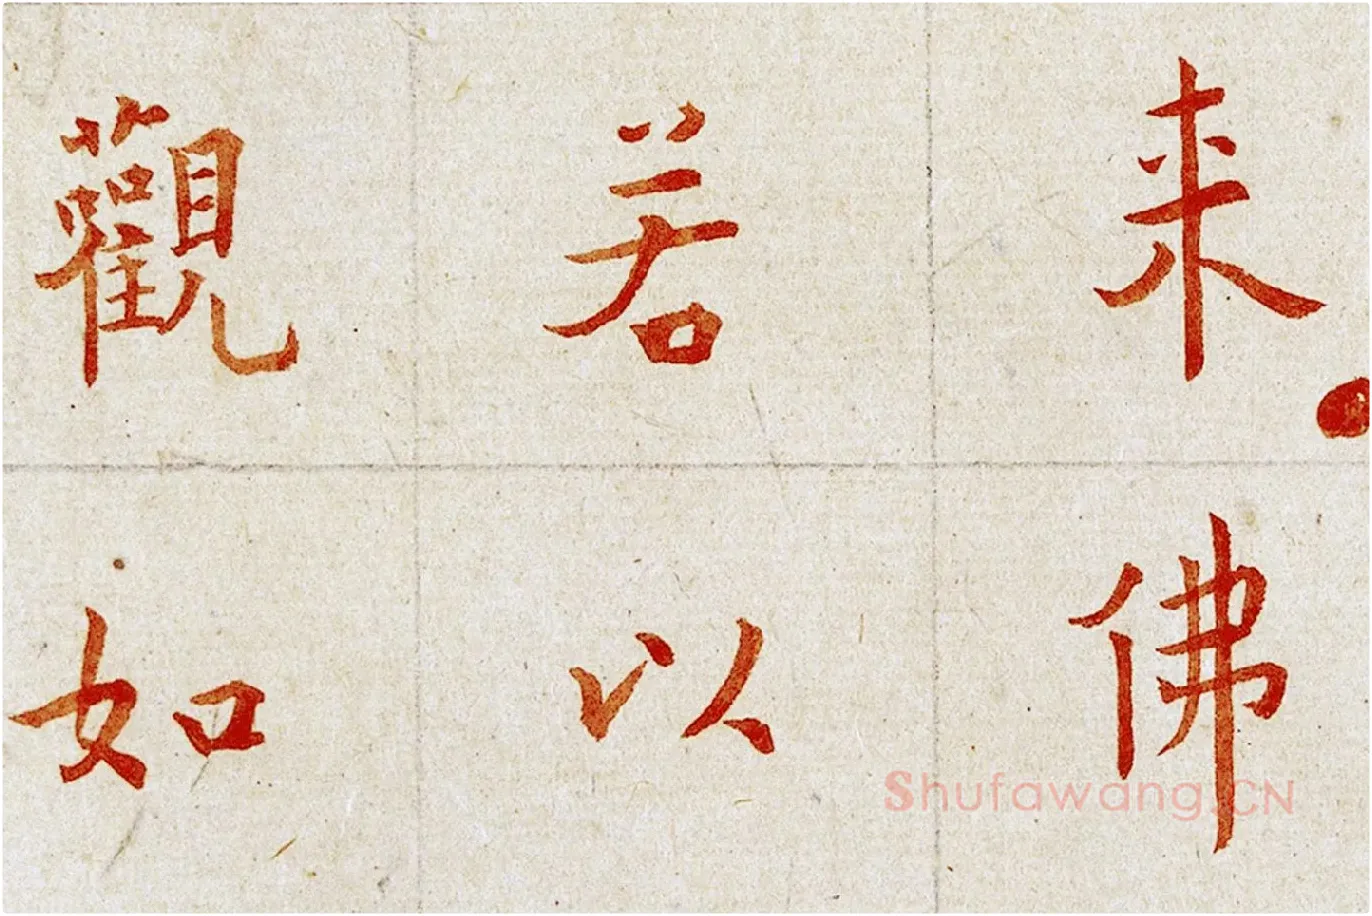 来佛
若以
觀如
Shufawang.CN